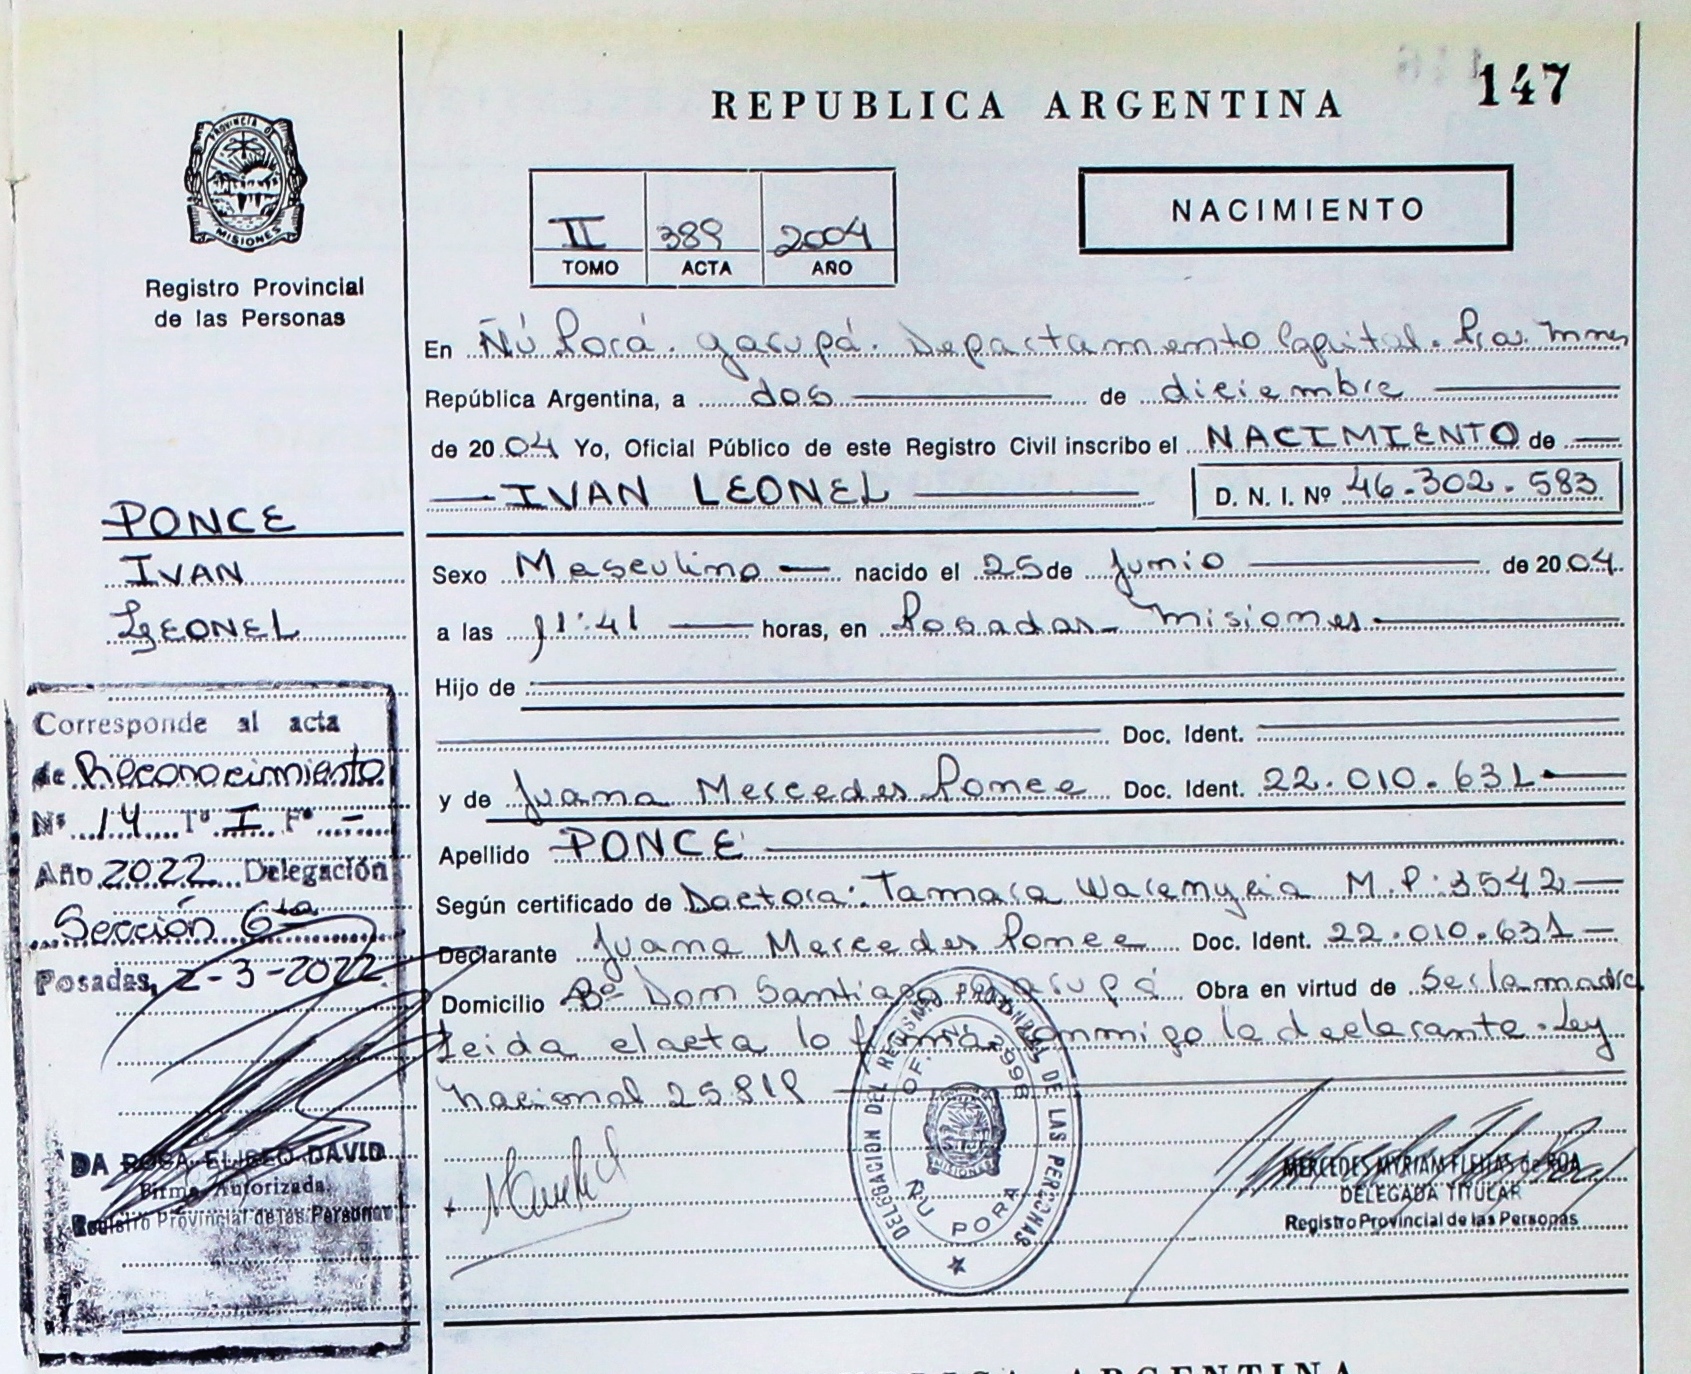 147
REPUBLICA ARGENTINA
PROVINCIA DE
MISIONES
Registro Provincial
de las Personas
II 389 2004
TOMO ACTA AÑO
NACIMIENTO
En Ñú Porá. Garupá. Departamento Capital. Pia. Mnes
República Argentina, a dos de diciembre
de 2004 Yo, Oficial Público de este Registro Civil inscribo el NACIMIENTO de
IVAN LEONEL D. N. I. Nº 46.302.583
PONCE
IVAN
LEONEL
Sexo Masculino nacido el 25 de Junio de 2004
a las 11:41 horas, en Posadas- Misiones
Hijo de
Doc. Ident.
y de Juana Mercedes Ponce Doc. Ident. 22.010.631
Apellido PONCE
Según certificado de Doctora: Tamara M.P: 3542
Declarante Juana Mercedes Ponce Doc. Ident. 22.010.631
Domicilio Bº Don Santiago Garupá Obra en virtud de Ser la madre
Leida el acta lo firma conmigo la declarante. Ley
Nacional 25.819
Corresponde al acta
de Reconocimiento
Nº 14 Tº I Fº -
Año 2022 Delegación
Sección 6ta
Posadas, 2-3-2022
DA ROSA ELISEO DAVID
Firma Autorizada
Registro Provincial de las Personas
DELEGACION DEL REGISTRO PROVINCIAL DE LAS PERSONAS
OF. Nº 2998
MISIONES
ÑU PORA
MERCEDES MYRIAM FLEITAS de ROA
DELEGADA TITULAR
Registro Provincial de las Personas
REPUBLICA ARGENTINA